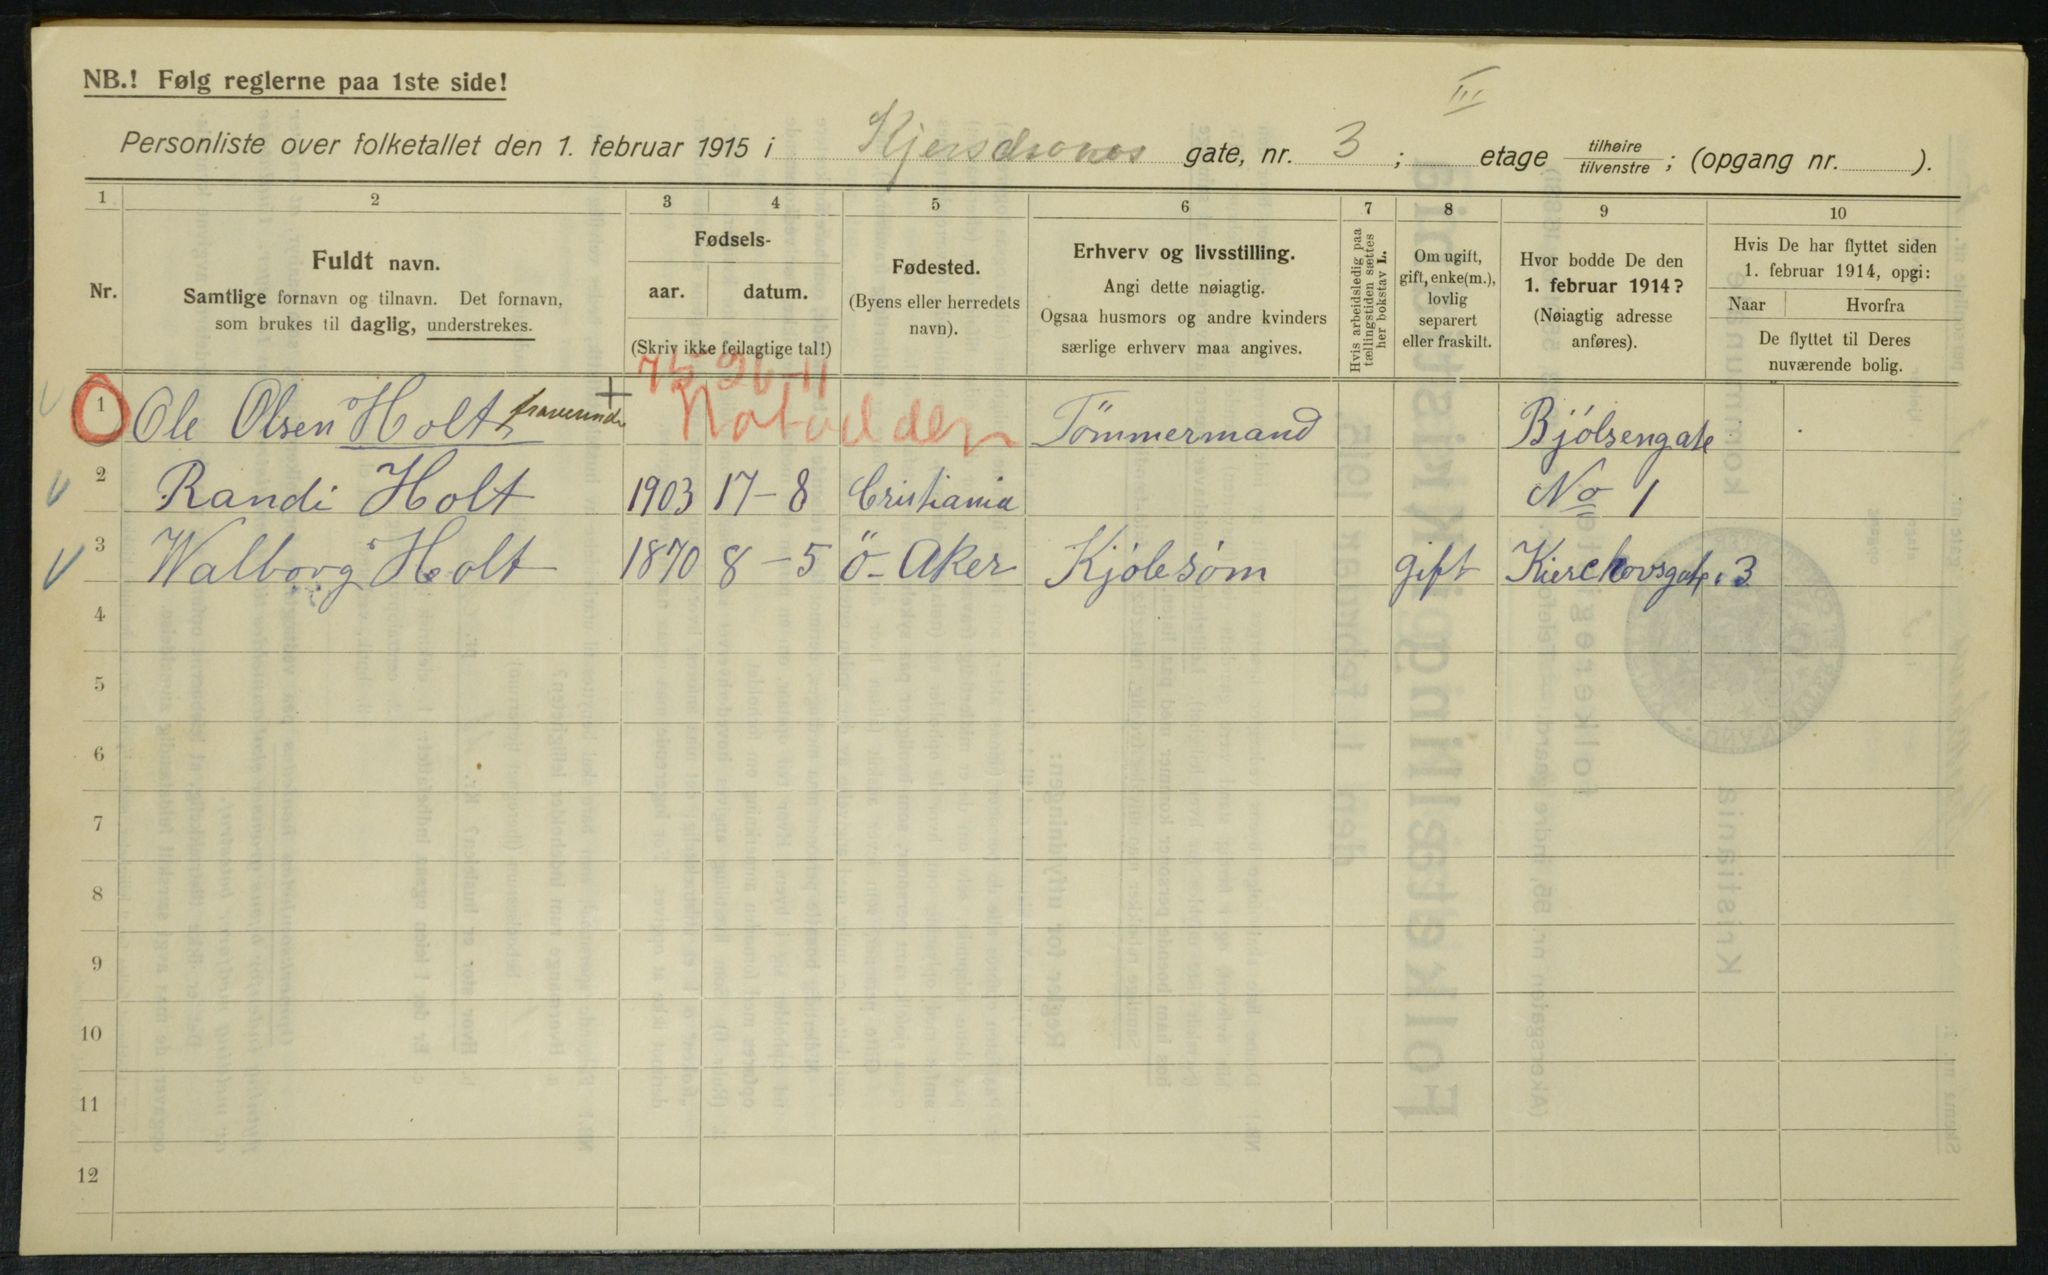 NB.! Følg reglerne paa 1ste side!
III
Personliste over folketallet den 1. februar 1915 i gate, nr. 3 ; etage tilhøire tilvenstre ; (opgang nr. ).
1 2 3 4 5 6 7 8 9 10
Nr.
Fuldt navn.
Samtlige fornavn og tilnavn. Det fornavn,
som brukes til daglig, understrekes.
Fødsels-
aar. datum.
(Skriv ikke feilagtige tal!)
Fødested.
(Byens eller herredets
navn).
Erhverv og livsstilling.
Angi dette nøiagtig.
Ogsaa husmors og andre kvinders
særlige erhverv maa angives.
Hvis arbeidsledig paa
tællingstiden sættes
her bokstav L.
Om ugift,
gift, enke(m.),
lovlig
separert
eller fraskilt.
Hvor bodde De den
1. februar 1914?
(Nøiagtig adresse
anføres).
Hvis De har flyttet siden
1. februar 1914, opgi:
Naar Hvorfra
De flyttet til Deres
nuværende bolig.
75 26-11
1 Ole Olsen Holt + Notodden Tömmermand Bjólsengate
2 Randi Holt 1903 17-8 Cristiania No 1
3 Walborg Holt 1870 8-5 Ö-Aker Kjólesöm gift 3
4
5
6
7
8
9
10
11
12